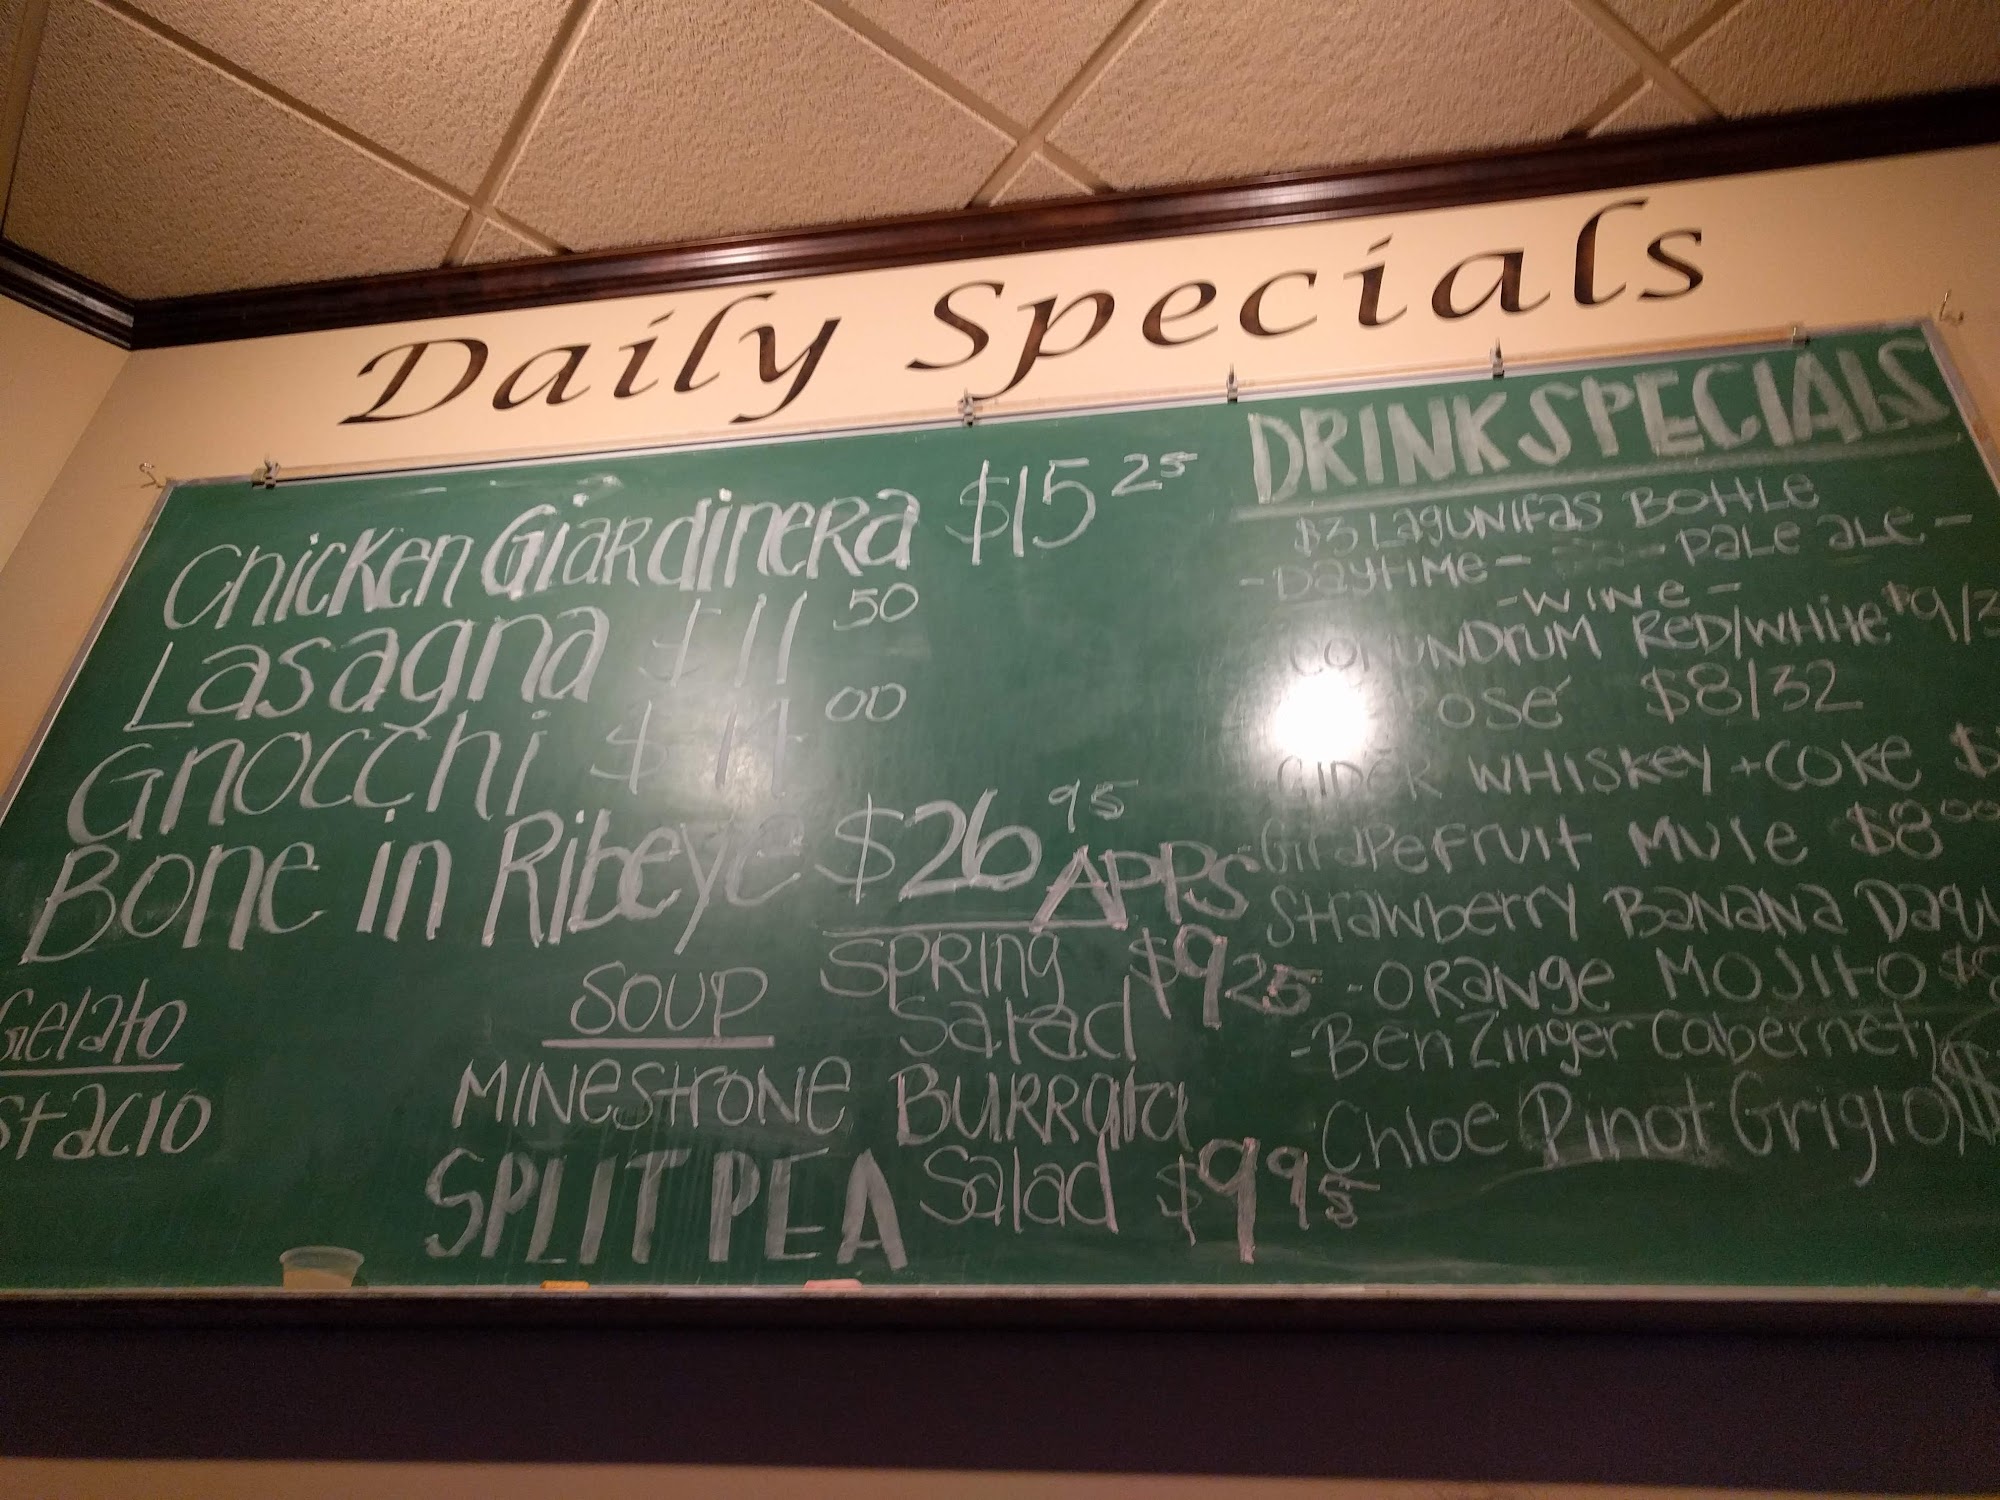 Daily Specials
Chicken Giardinera $15 25
Lasagna $11 50
Gnocchi $11 00
Bone in Ribeye $26 95
Gelato
stacio
SOUP
MINESTRONE
SPLIT PEA
APPS
SPRING Salad $9 25
BURRata Salad $9 95
DRINK SPECIALS
$3 LAGUNITAS BOttLe
- DAYTIME - - PALE ALE -
- WINE -
CONUNDRUM RED/WHITE $9/3
ROSÉ $8/32
CIDER WHISKEY + COKE $
GRAPEFRUIT MULE $8 00
Strawberry BANANA Daqu
- ORANGE MOJITO $8
- Ben Zinger Cabernet,
Chloe (Pinot Grigio) $